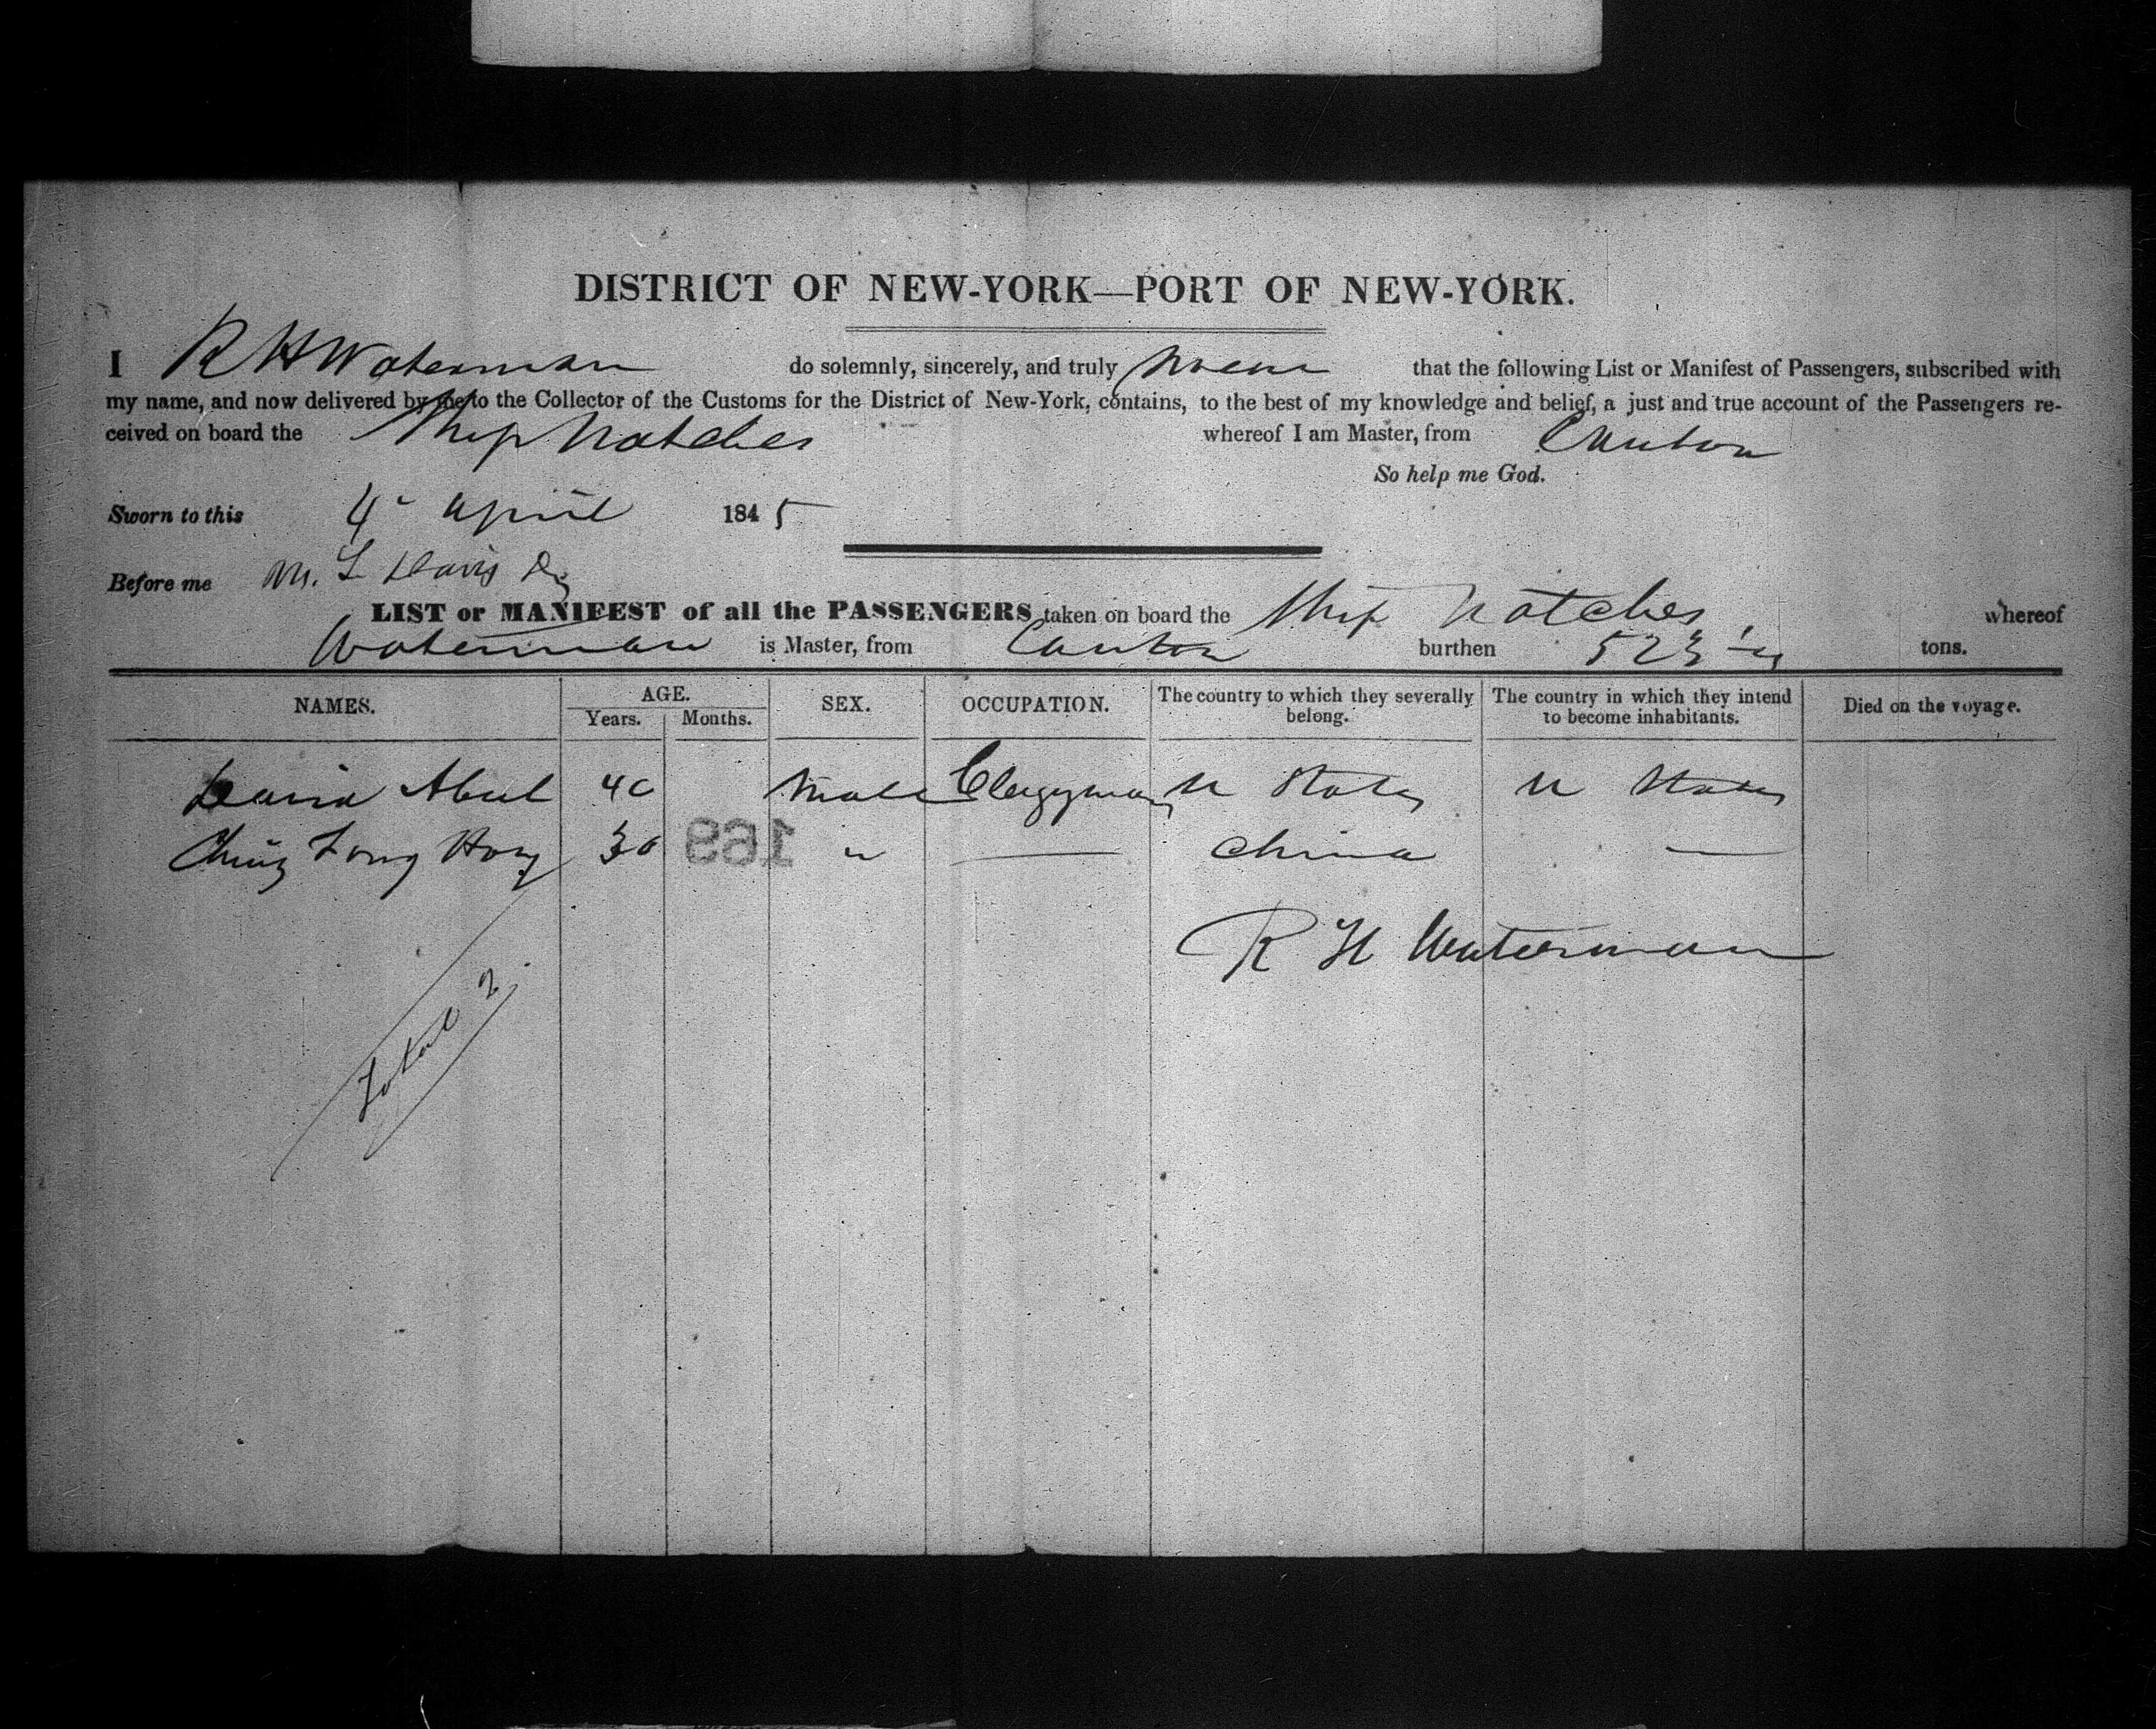 DISTRICT OF NEW-YORK—PORT OF NEW-YORK.
I R H Waterman do solemnly, sincerely, and truly swear that the following List or Manifest of Passengers, subscribed with
my name, and now delivered by me to the Collector of the Customs for the District of New-York, contains, to the best of my knowledge and belief, a just and true account of the Passengers re-
ceived on board the Ship Natches whereof I am Master, from Canton
So help me God.
Sworn to this 4 April 1845
Before me M. L Davis
LIST or MANIFEST of all the PASSENGERS taken on board the Ship Natches whereof
Waterman is Master, from Canton burthen 523 tons.
NAMES. AGE. Years. Months. SEX. OCCUPATION. The country to which they severally belong. The country in which they intend to become inhabitants. Died on the voyage.
David Abeel 40 Male Clergyman U States U States
Ching Fong Hong 30 " — China —
169
R H Waterman
Total 2